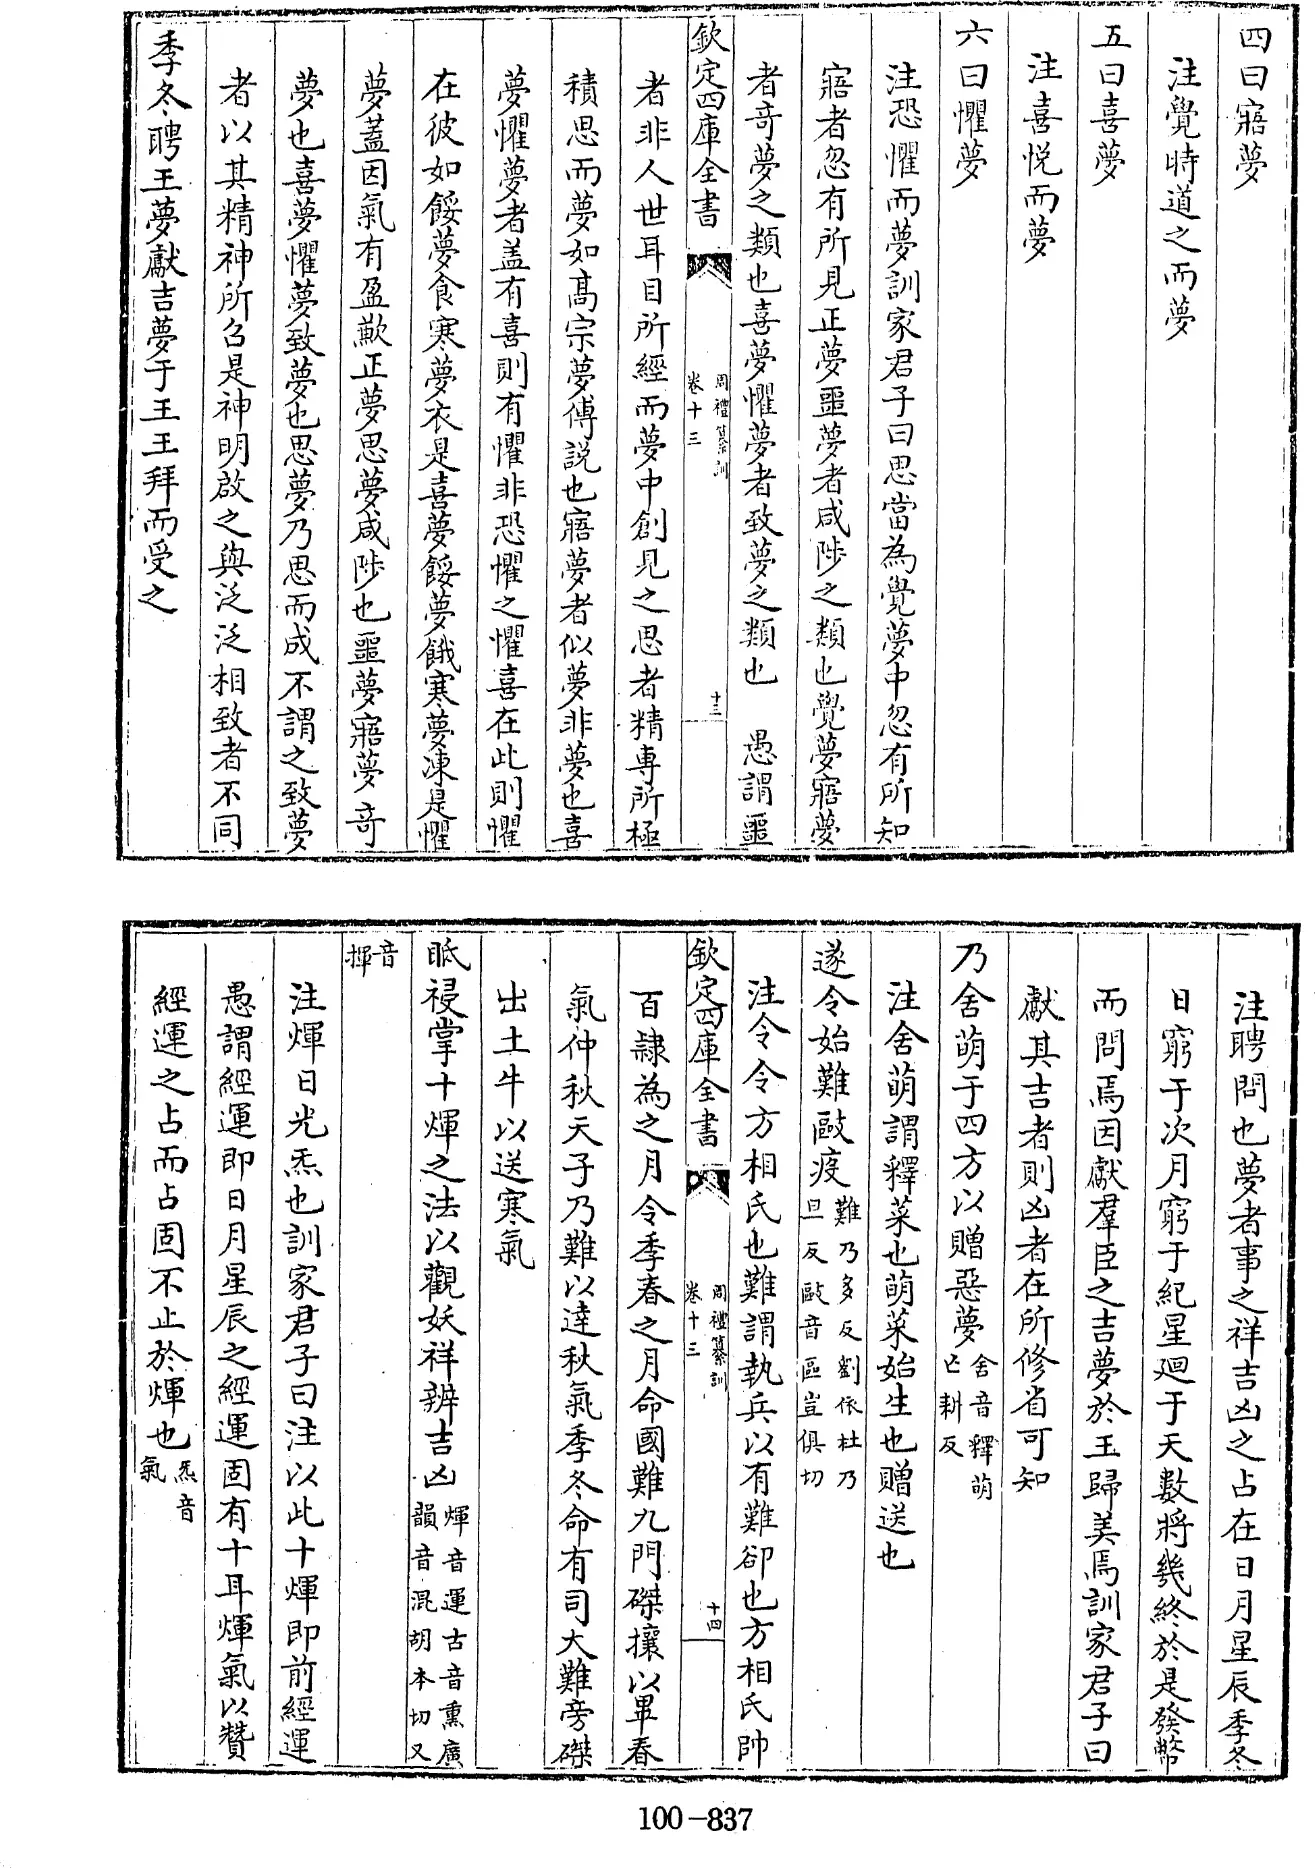 四曰寤夢
注覺時道之而夢
五曰喜夢
注喜悅而夢
六曰懼夢
注恐懼而夢訓家君子曰思當為覺夢中忽有所知
寤者忽有所見正夢噩夢者咸陟之類也覺夢寤夢
者奇夢之類也喜夢懼夢者致夢之類也　愚謂噩
欽定四庫全書
周禮纂訓
卷十三
十三
者非人世耳目所經而夢中創見之思者精專所極
積思而夢如高宗夢傅說也寤夢者似夢非夢也喜
夢懼夢者盖有喜則有懼非恐懼之懼喜在此則懼
在彼如餒夢食寒夢衣是喜夢餒夢餓寒夢凍是懼
夢蓋因氣有盈歉正夢思夢咸陟也噩夢寤夢奇
夢也喜夢懼夢致夢也思夢乃思而成不謂之致夢
者以其精神所召是神明啟之與泛泛相致者不同
季冬聘王夢獻吉夢于王王拜而受之
注聘問也夢者事之祥吉凶之占在日月星辰季冬
日窮于次月窮于紀星廻于天數將幾終於是發幣
而問焉因獻羣臣之吉夢於王歸美焉訓家君子曰
獻其吉者則凶者在所修省可知
乃舍萌于四方以贈惡夢舍音釋萌
亡耕反
注舍萌謂釋菜也萌菜始生也贈送也
遂令始難敺疫難乃多反劉依杜乃
旦反敺音區豈俱切
注令令方相氏也難謂執兵以有難郤也方相氏帥
欽定四庫全書
周禮纂訓
卷十三
十四
百隷為之月令季春之月命國難九門磔攘以畢春
氣仲秋天子乃難以達秋氣季冬命有司大難旁磔
出土牛以送寒氣
眡祲掌十煇之法以觀妖祥辨吉凶煇音運古音熏廣
韻音混胡本切又
音
揮
注煇日光炁也訓家君子曰注以此十煇即前經運
愚謂經運即日月星辰之經運固有十耳煇氣以贊
經運之占而占固不止於煇也炁音
氣
100-837